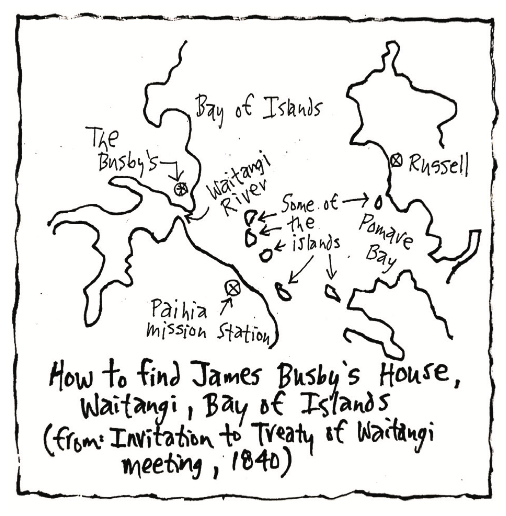 Bay of Islands
The
Busby's
Waitangi
River
Russell
Some of
the
islands
Pomare
Bay
Paihia
mission Station
How to find James Busby's House,
Waitangi, Bay of Islands
(from: Invitation to Treaty of Waitangi
meeting, 1840)